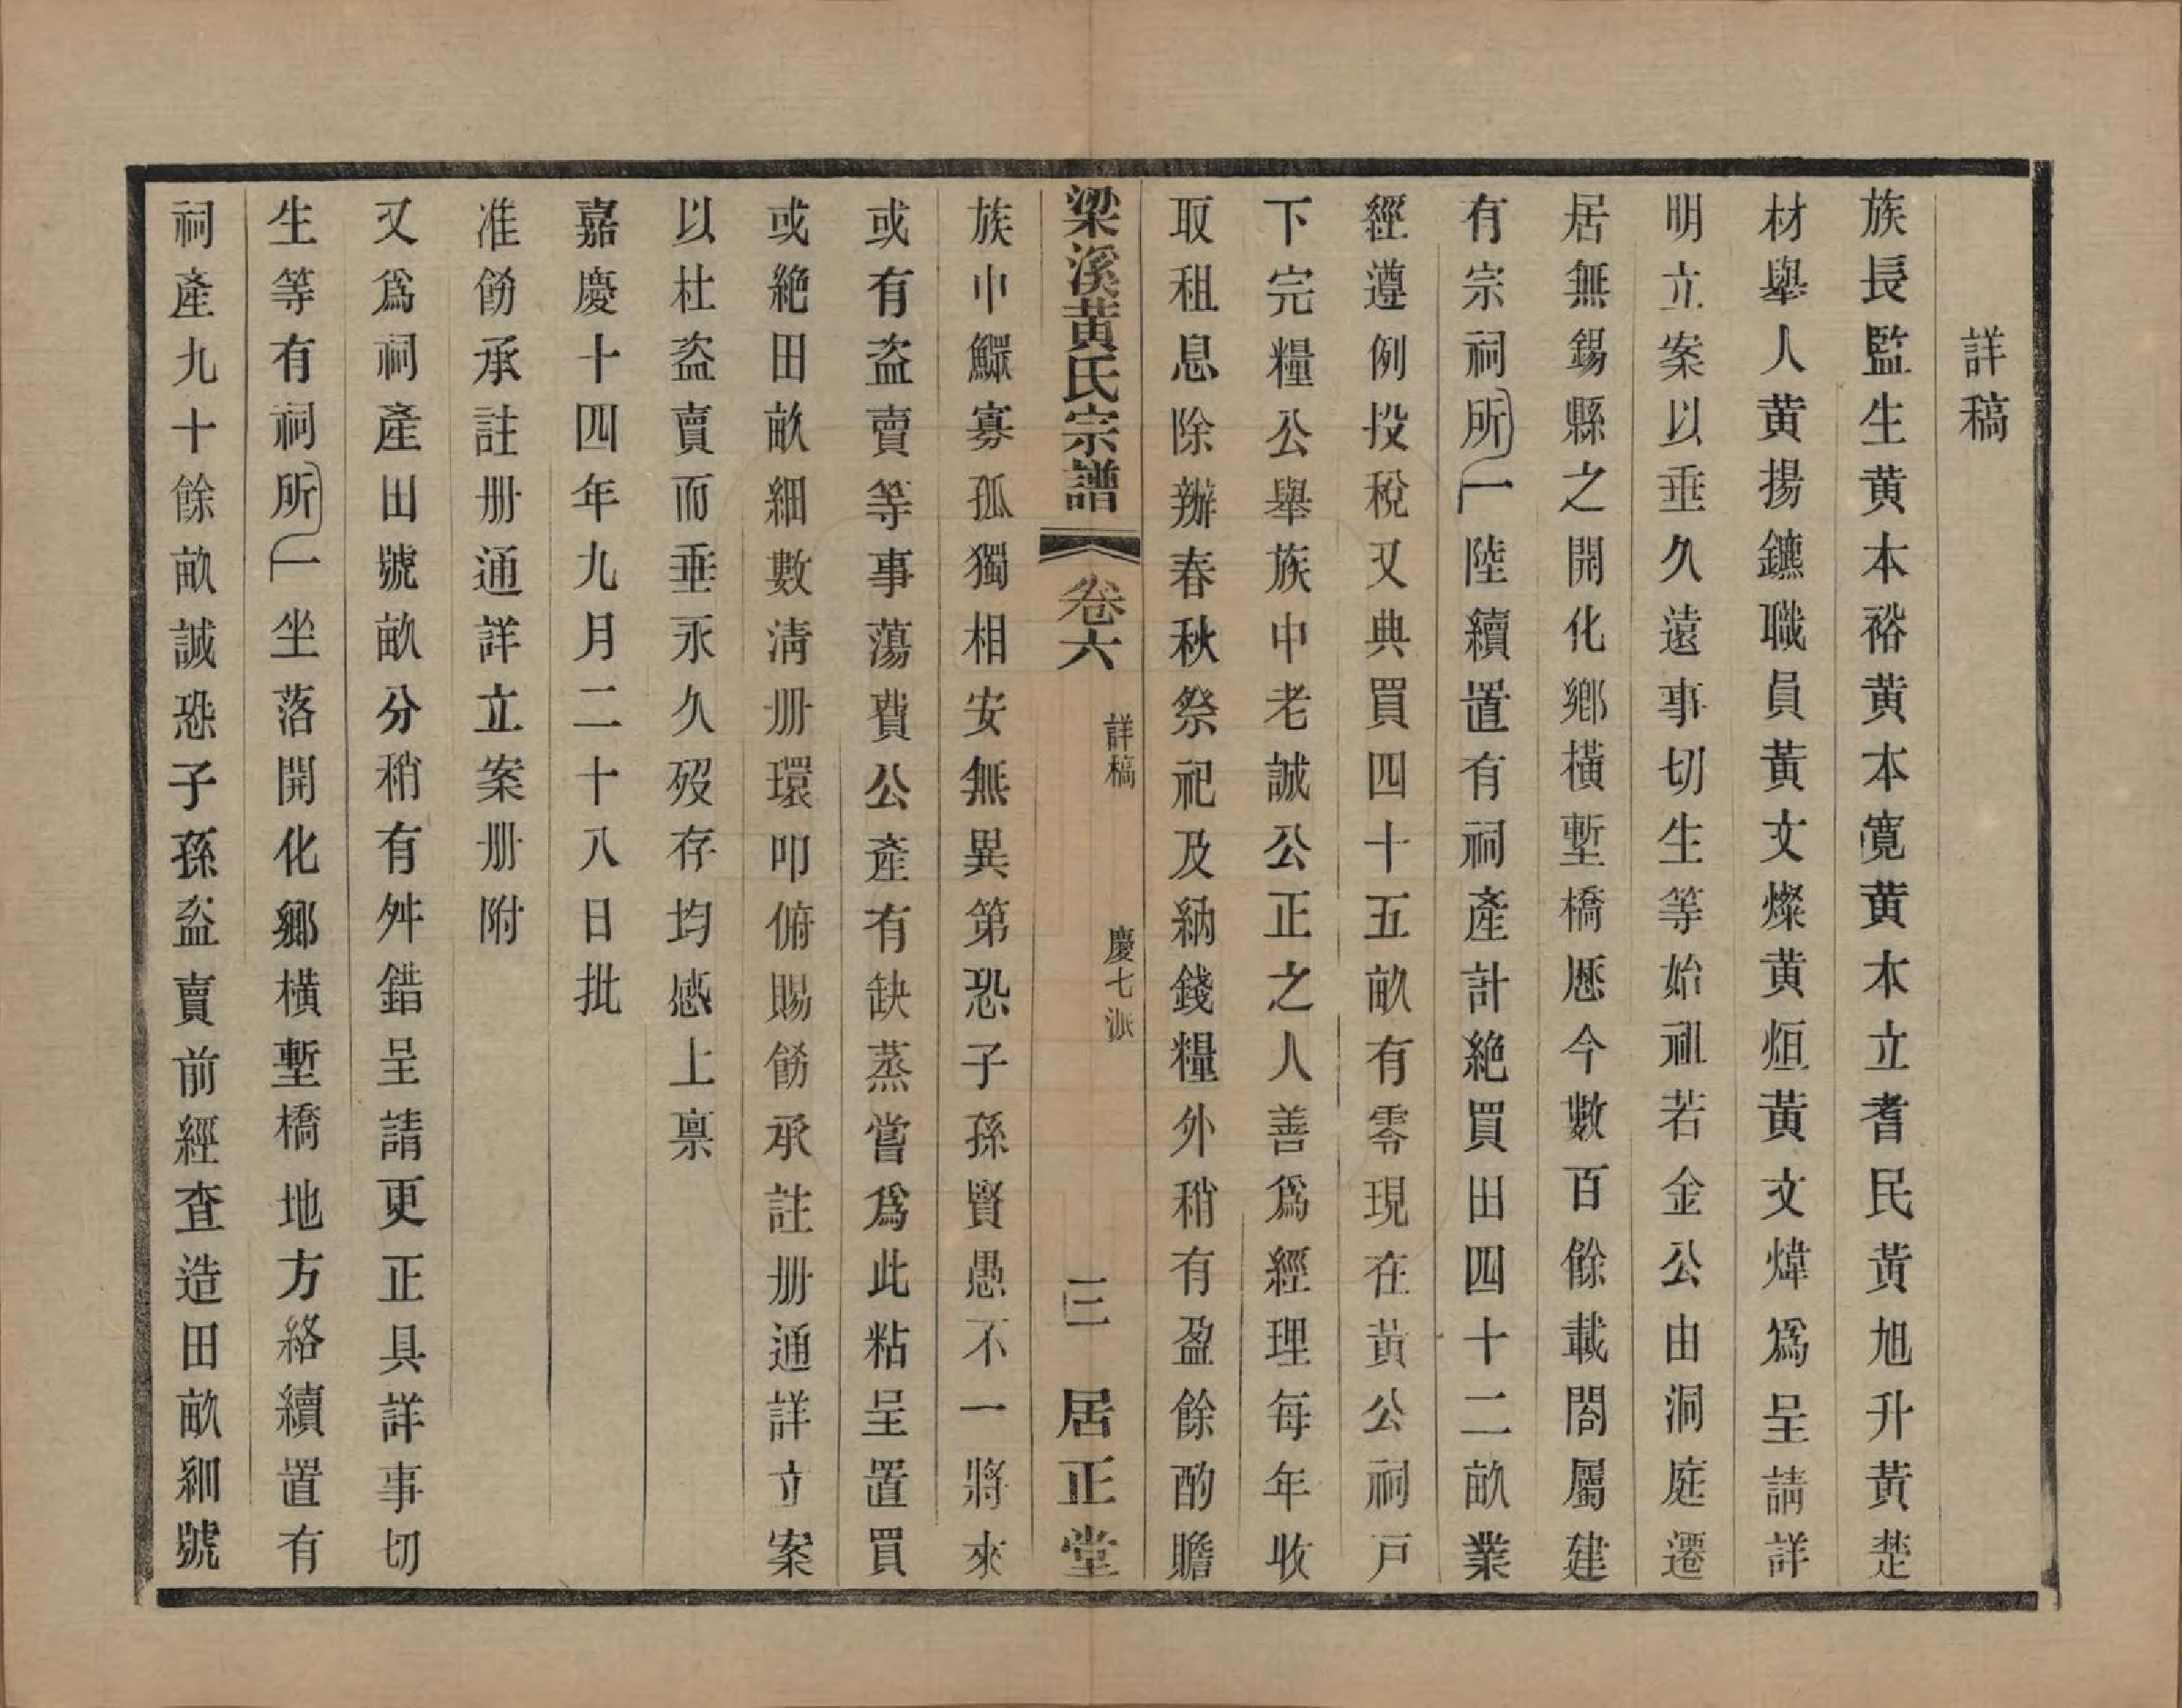 詳稿
族長監生黄本裕黄本寛黄本立耆民黄旭升黄楚
材舉人黄揚鑣職員黄文燦黄烜黄文煒爲呈請詳
明立案以垂久遠事切生等始祖若金公由洞庭遷
居無錫縣之開化鄉橫塹橋歷今數百餘載閤屬建
有宗祠所一陸續置有祠產計絶買田四十二畝業
經遵例投稅又典買四十五畝有零現在黄公祠戸
下完糧公舉族中老誠公正之人善爲經理每年收
取租息除辦春秋祭祀及納錢糧外稍有盈餘酌贍
梁溪黄氏宗譜 卷六 詳稿 慶七派 三 居正堂
族中鰥寡孤獨相安無異第恐子孫賢愚不一將來
或有盜賣等事蕩費公產有缺蒸嘗爲此粘呈置買
或絶田畝細數清册環叩俯賜飭承註册通詳立案
以杜盜賣而垂永久歿存均感上稟
嘉慶十四年九月二十八日批
准飭承註册通詳立案册附
又爲祠產田號畝分稍有舛錯呈請更正具詳事切
生等有祠所一坐落開化鄉橫塹橋地方絡續置有
祠產九十餘畝誠恐子孫盜賣前經查造田畝細號